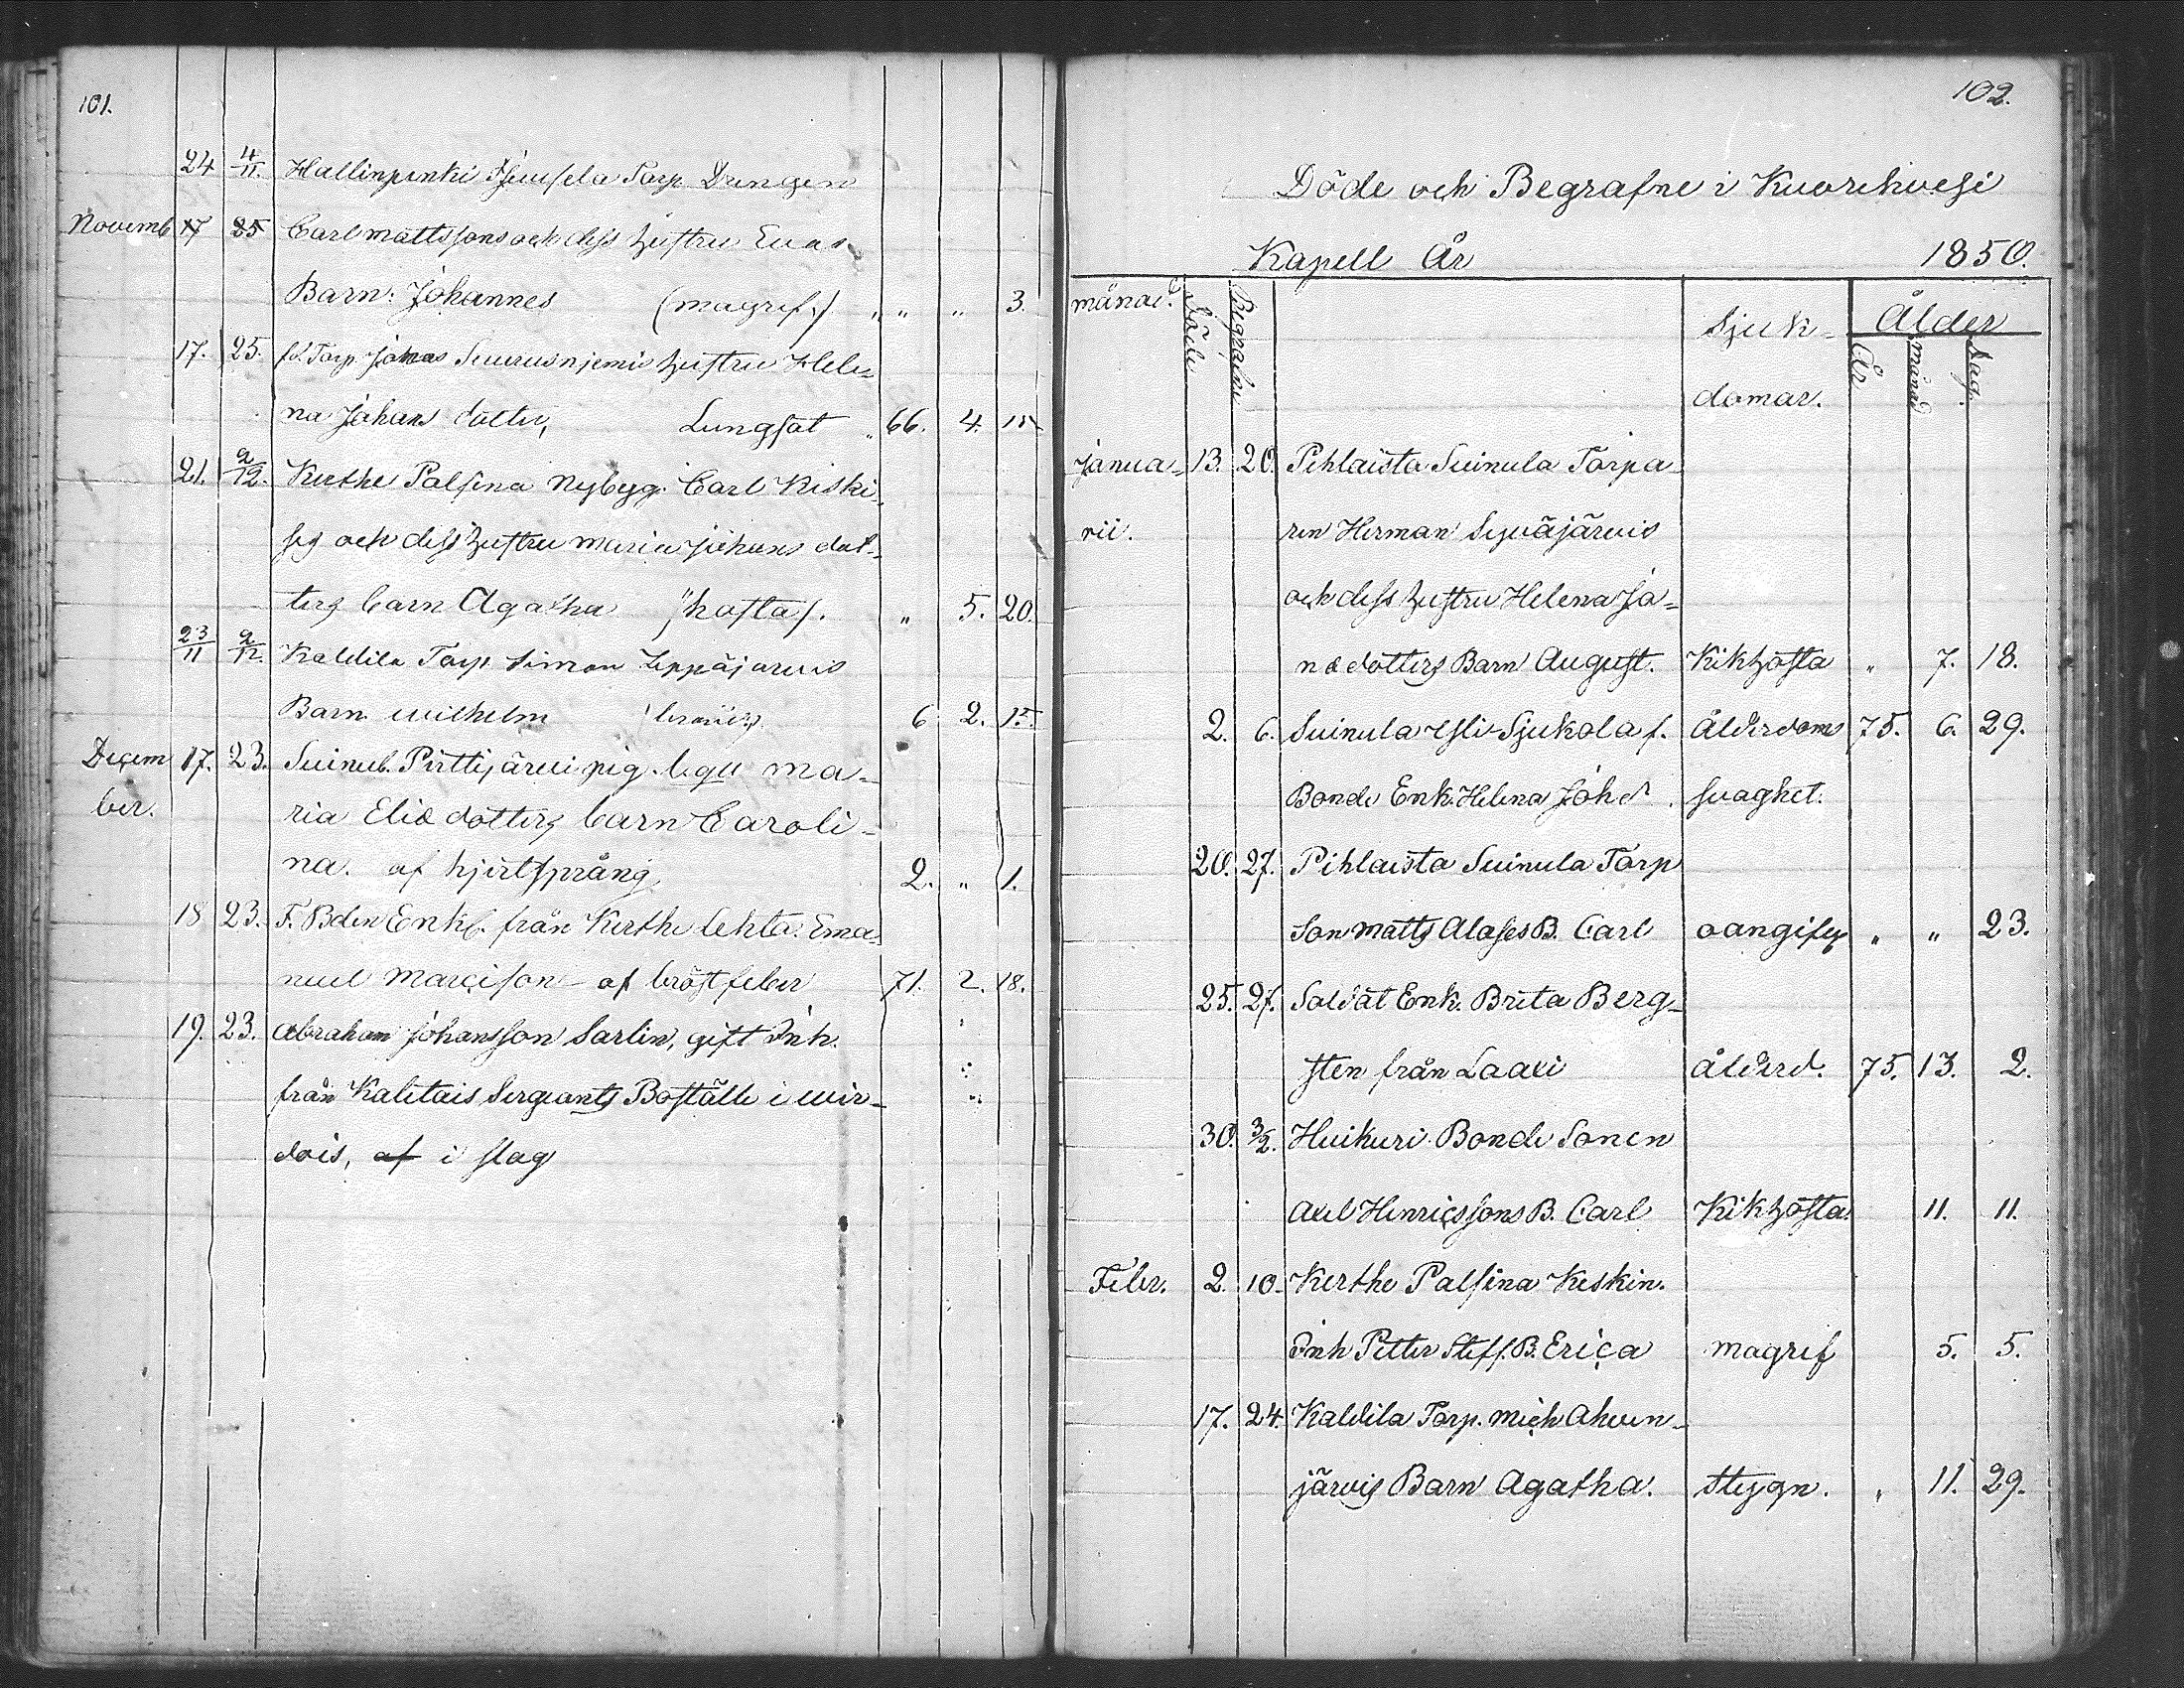 101.
24 4/11. Hallinpenki Torp Drengen
Novemb 17 25 Carl mattssons och dess hustru Evas
Barn: Johannes (magref.) " " " 3.
17. 25. fd. Torp. Johas Suurusnjemis hustru Hele=
na Johans dotter, Lungsot " 66. 4. 15
21. 2/12. Kerthe Palsina Nybyg. Carl Kiski-
och dess hustru maria Johans dot-
ters barn Agatha hosta). " 5. 20.
23/11 2/12. Kaldila Torp. Simon Leppäjärvis
Barn. wilhelm 6 2. 15.
Decem 17. 23. Suinul. Pirttijärvi pig. ma-
ber. ria Eliæ dotters barn Caroli-
na. af hjertsprång 2. " 1.
18 23. F. Bden Enkl. från Kerthe Lehto. Ema-
nuel Marcison af bröstfeber 71. 2. 18.
19. 23. Abraham Johansson Sarlin, gift Inh.
från Kaletais Sergeants Boställe i wir-
dois, af i slag
102.
Döde och Begrafne i Kuorehvesi
Kapell År 1850.
månad. Döde Begrafne Sjuk- Ålder
domar. År månad dag.
Janua- 13. 20. Pihlaista Suinula Torpa-
rii. ren Herman Syväjärvis
och dess hustru Helena Jo=
nædotters Barn August. Kikhosta " 7. 18.
2. 6. Suinula Yli-Sjukola f. ålderdoms 75. 6. 29.
Bonde Enk. Helena Johd. svaghet.
20. 27. Pihlaista Suinula Torp
Son matts Alases B. Carl oangifv " " 23.
25. 27. Soldat Enk. Brita Berg-
sten från Laaxi ålderd. 75. 13. 2.
30. 3/2. Huikuri Bonde Sonen
Axel Henricssons B. Carl Kikhosta. 11. 11.
Febr. 2. 10. Kerthe Palsina Keskin.
Inh Petter Stef. B. Erica magref 5. 5.
17. 24. Kaldila Torp. mich Ahven-
järvis Barn Agatha. Stygn. " 11. 29.